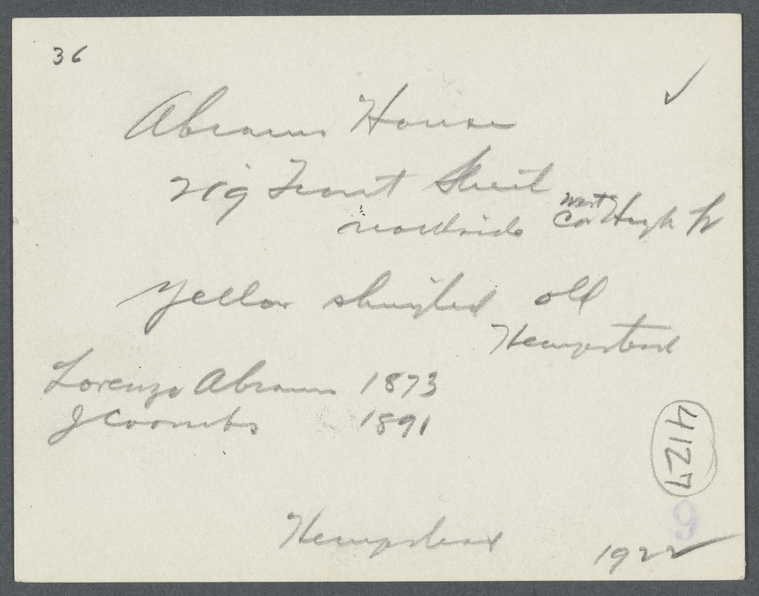 36
Abrams House
219 Front Street
northside West Cor High St
Yellow shingled old
Hempstead
Lorenzo Abrams 1873
J Coombs 1891
4127
Hempstead
1922